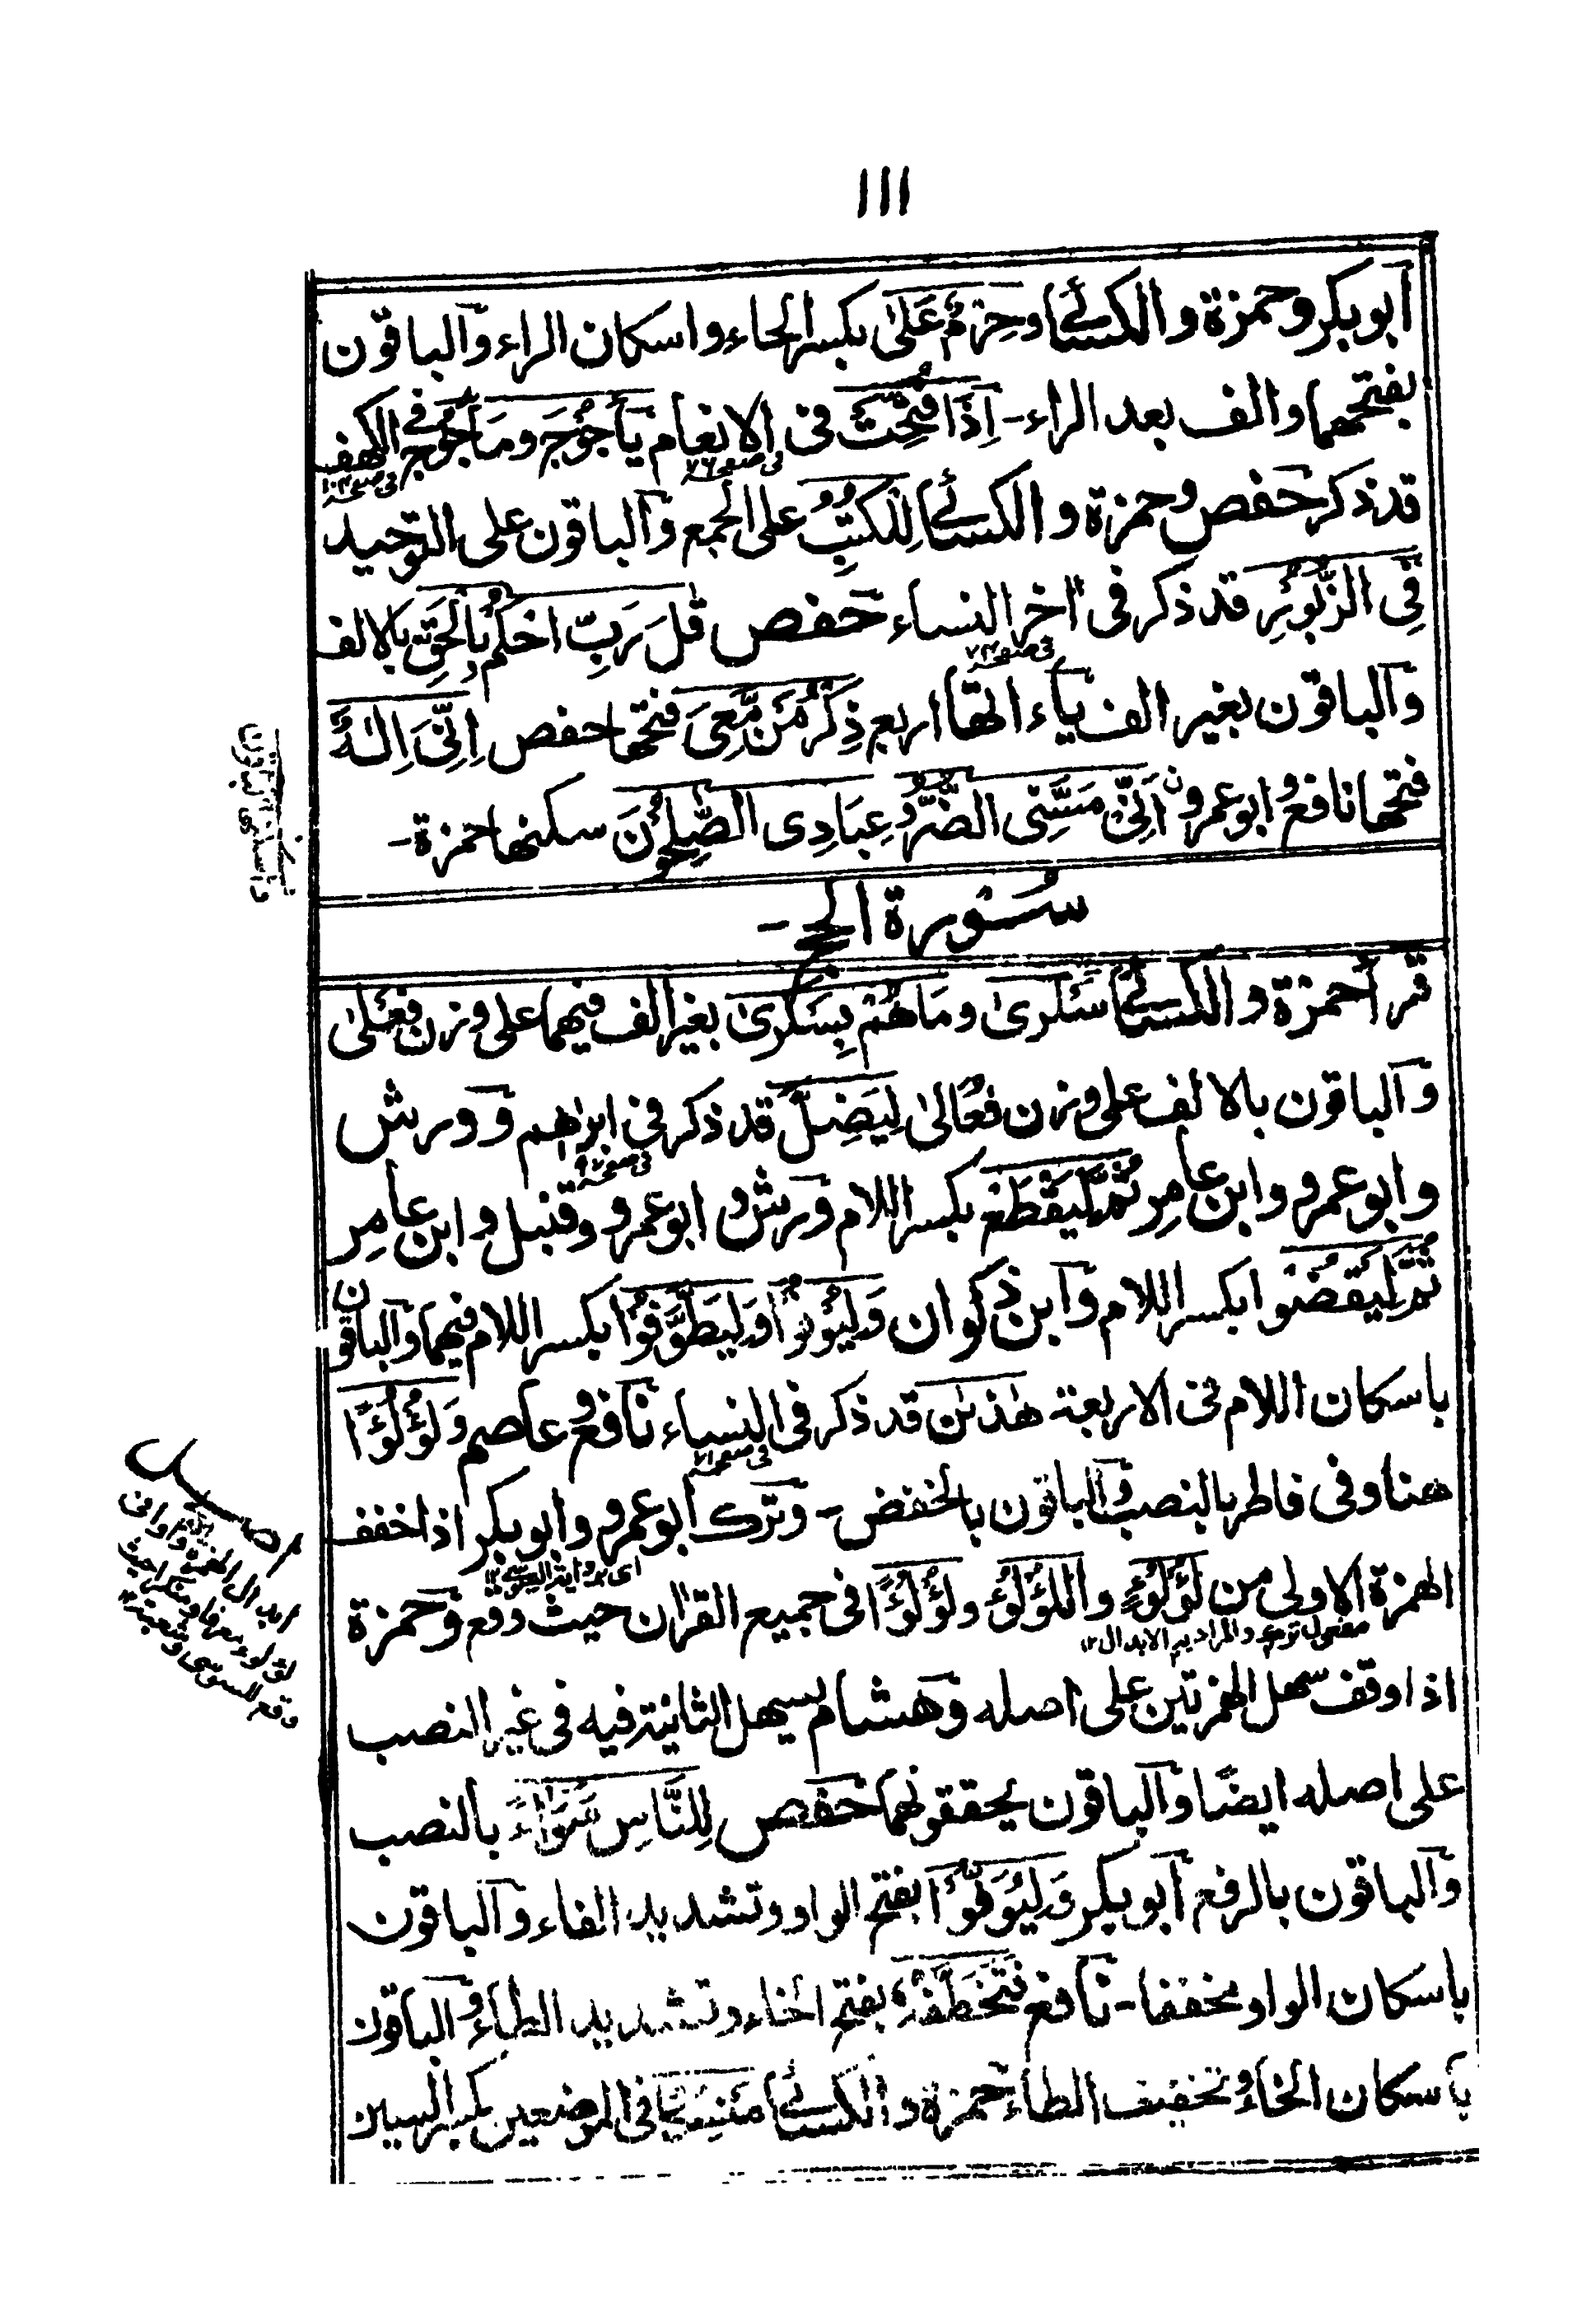 ١١١
ابو بكر وحمزة والكسائى وحِرْمٌ عَلٰى بكسر الحاء واسكان الراء والباقون
بفتحهما والف بعد الراء - اِذَا فُتِحَتْ فى الانعام يَأْجُوْجَ ومَأْجُوْجَ فى الكهف
فى صفحه ٧٦
فى صفحه ١٠٣
قد ذكر حفص وحمزة والكسائى لِلْكُتُبِ على الجمع والباقون على التوحيد
فِى الزَّبُوْرِ قد ذكر فى اٰخر النساء حفص قٰلَ رَبِّ احْكُمْ بِالْحَقِّ بالالف
فى صفحه ٧٣
والباقون بغير الف ياء اتها اربع ذِكْرُ مَنْ مَّعِىَ فتحها حفص اِنِّىَ اِلٰهٌ
فتحها نافع وابو عمرو اَنِّىَ مَسَّنِىَ الضُّرُّ وعِبَادِىَ الصّٰلِحُوْنَ سكنها حمزة -
سُوْرة الحج -
قرأ حمزة والكسائى سَكْرىٰ وَمَا هُمْ بِسَكْرىٰ بغير الف فيهما على وزن فَعْلىٰ
والباقون بالالف على وزن فُعَالىٰ لِيَضِلَّ قد ذكر فى ابراهيم وورش
فى صفحه ٩٢
وابو عمرو وابن عامر ثُمَّ لِيَقْطَعْ بكسر اللام ورش وابو عمرو وقنبل وابن عامر
ثُمَّ لِيَقْضُوْا بكسر اللام وابن ذكوان وَلِيُوْفُوْا وَلِيَطَّوَّفُوْا بكسر اللام فيهما والباقون
باسكان اللام فى الاربعة هٰذٰنِ قد ذكر فى النساء نافع وعاصم وَلُؤْلُؤًا
فى صفحه ٧١
هنا وفى فاطر بالنصب والباقون بالخفض - وترك ابو عمرو وابو بكر اذا خفف
الهمزة الاولى من لُؤْلُؤٌ واللُّؤْلُؤُ ولُؤْلُؤًا فى جميع القراٰن حيث وقع وحمزة
مفعول ترك والمراد به الابدال ١٢
اذا وقف سهل الهمزتين على اصله وهشام يسهل الثانية فيه فى غير النصب
على اصله ايضًا والباقون يحققونهما حفص لِلنَّاسِ سَوَآءً بالنصب
والباقون بالرفع ابو بكر وَلِيُوَفُّوْا بفتح الواو وتشديد الفاء والباقون
باسكان الواو مخففا - نافع فَتَخَطَّفُهُ بفتح الخاء وتشديد الطاء والباقون
باسكان الخاء وتخفيف الطاء حمزة والكسائى مَنْسِكًا فى الموضعين بكسر السين